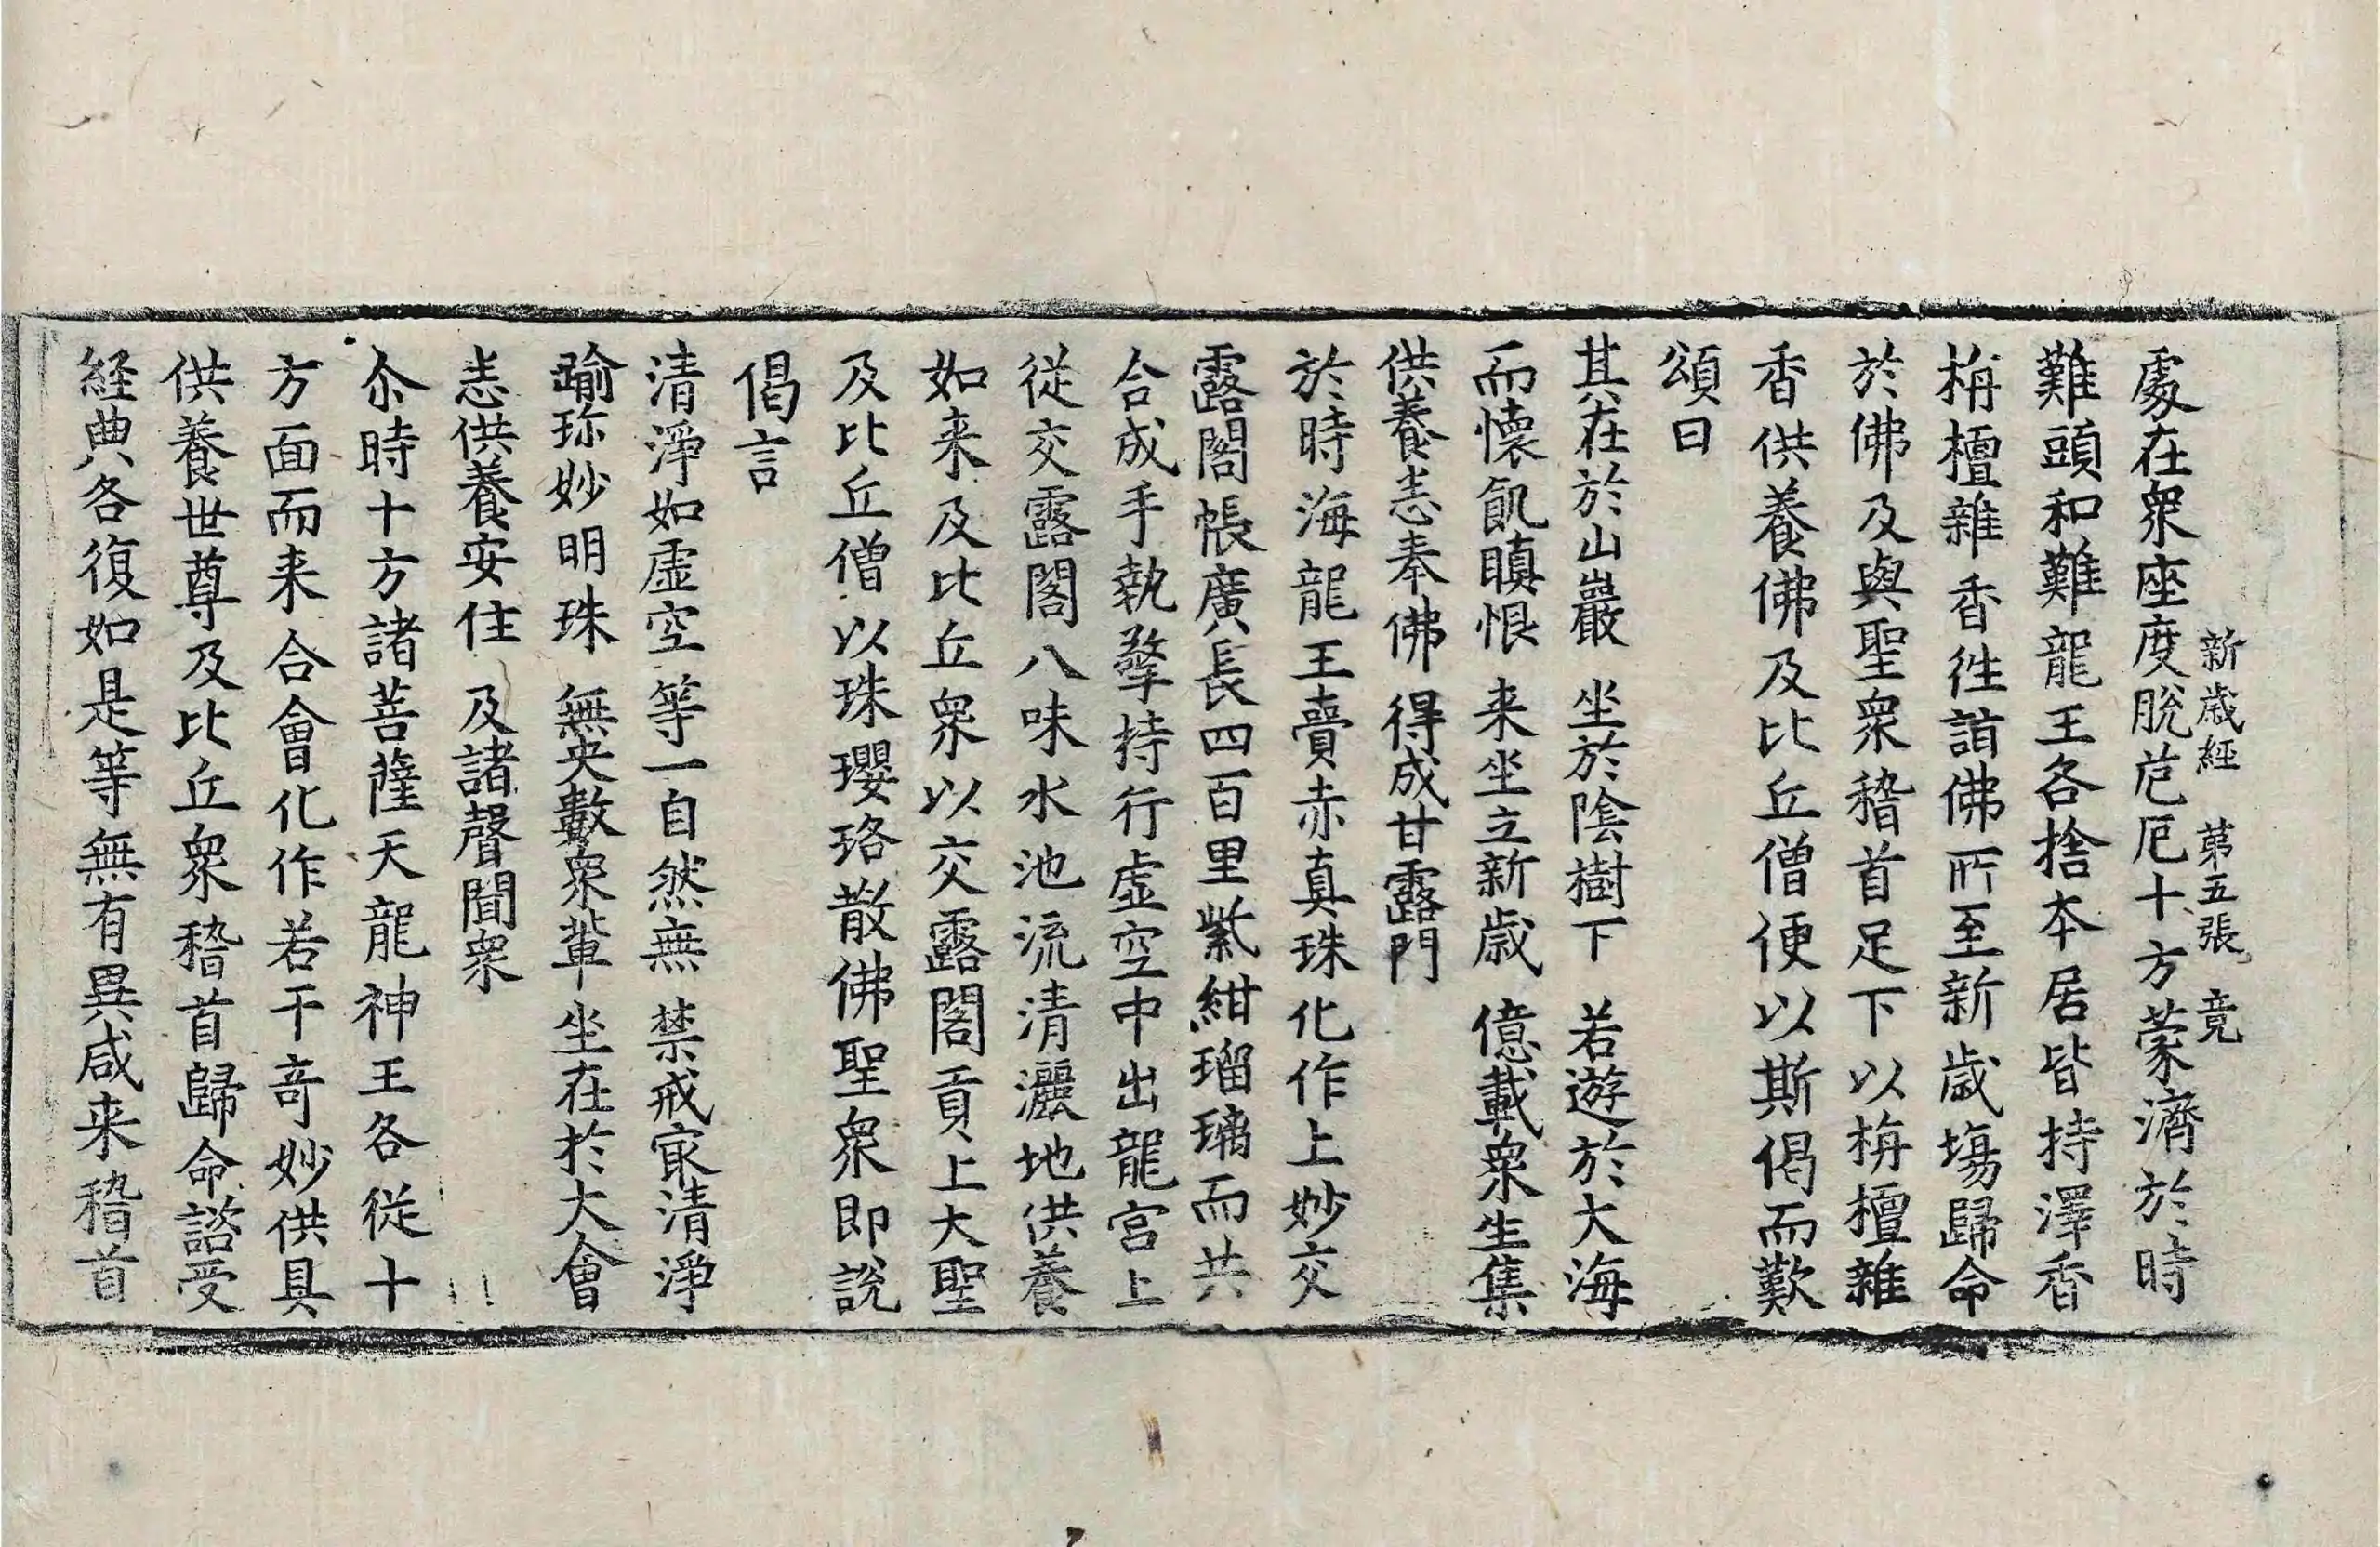 新歲經　第五張　竟
處在衆座度脫苊厄十方蒙濟於時
難頭和難龍王各捨本居皆持澤香
栴檀雜香徃詣佛所至新歲場歸命
於佛及與聖衆稽首足下以栴檀雜
香供養佛及比丘僧便以斯偈而歎
頌曰
其在於山巖　坐於陰樹下　若遊於大海
而懷飢瞋恨　来坐立新歲　億載衆生集
供養悉奉佛　得成甘露門
於時海龍王賣赤真珠化作上妙交
露閣帳廣長四百里紫紺瑠璃而共
合成手執擎持行虛空中出龍宮上
從交露閣八味水池流清灑地供養
如来及比丘衆以交露閣貢上大聖
及比丘僧以珠瓔珞散佛聖衆即說
偈言
清淨如虛空　等一自然無　禁戒冣清淨
踰珎妙明珠　無央數衆輩　坐在於大會
悉供養安住　及諸聲聞衆
尒時十方諸菩薩天龍神王各從十
方面而来合會化作若干竒妙供具
供養世尊及比丘衆稽首歸命諮受
経典各復如是等無有異咸来稽首